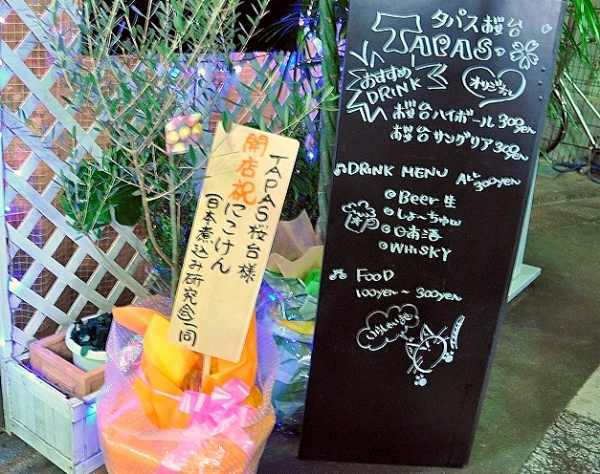 タパス桜台
TAPAS.
おすすめ
DRINK
オリジナル
桜台ハイボール 300yen
桜台サングリア 300yen
DRINK MENU ALL 300yen
Beer 生
しょーちゅー
日本酒
WHISKY
FOOD
100yen〜300yen
開店祝
TAPAS桜台様
にこけん
日本煮込み研究会一同